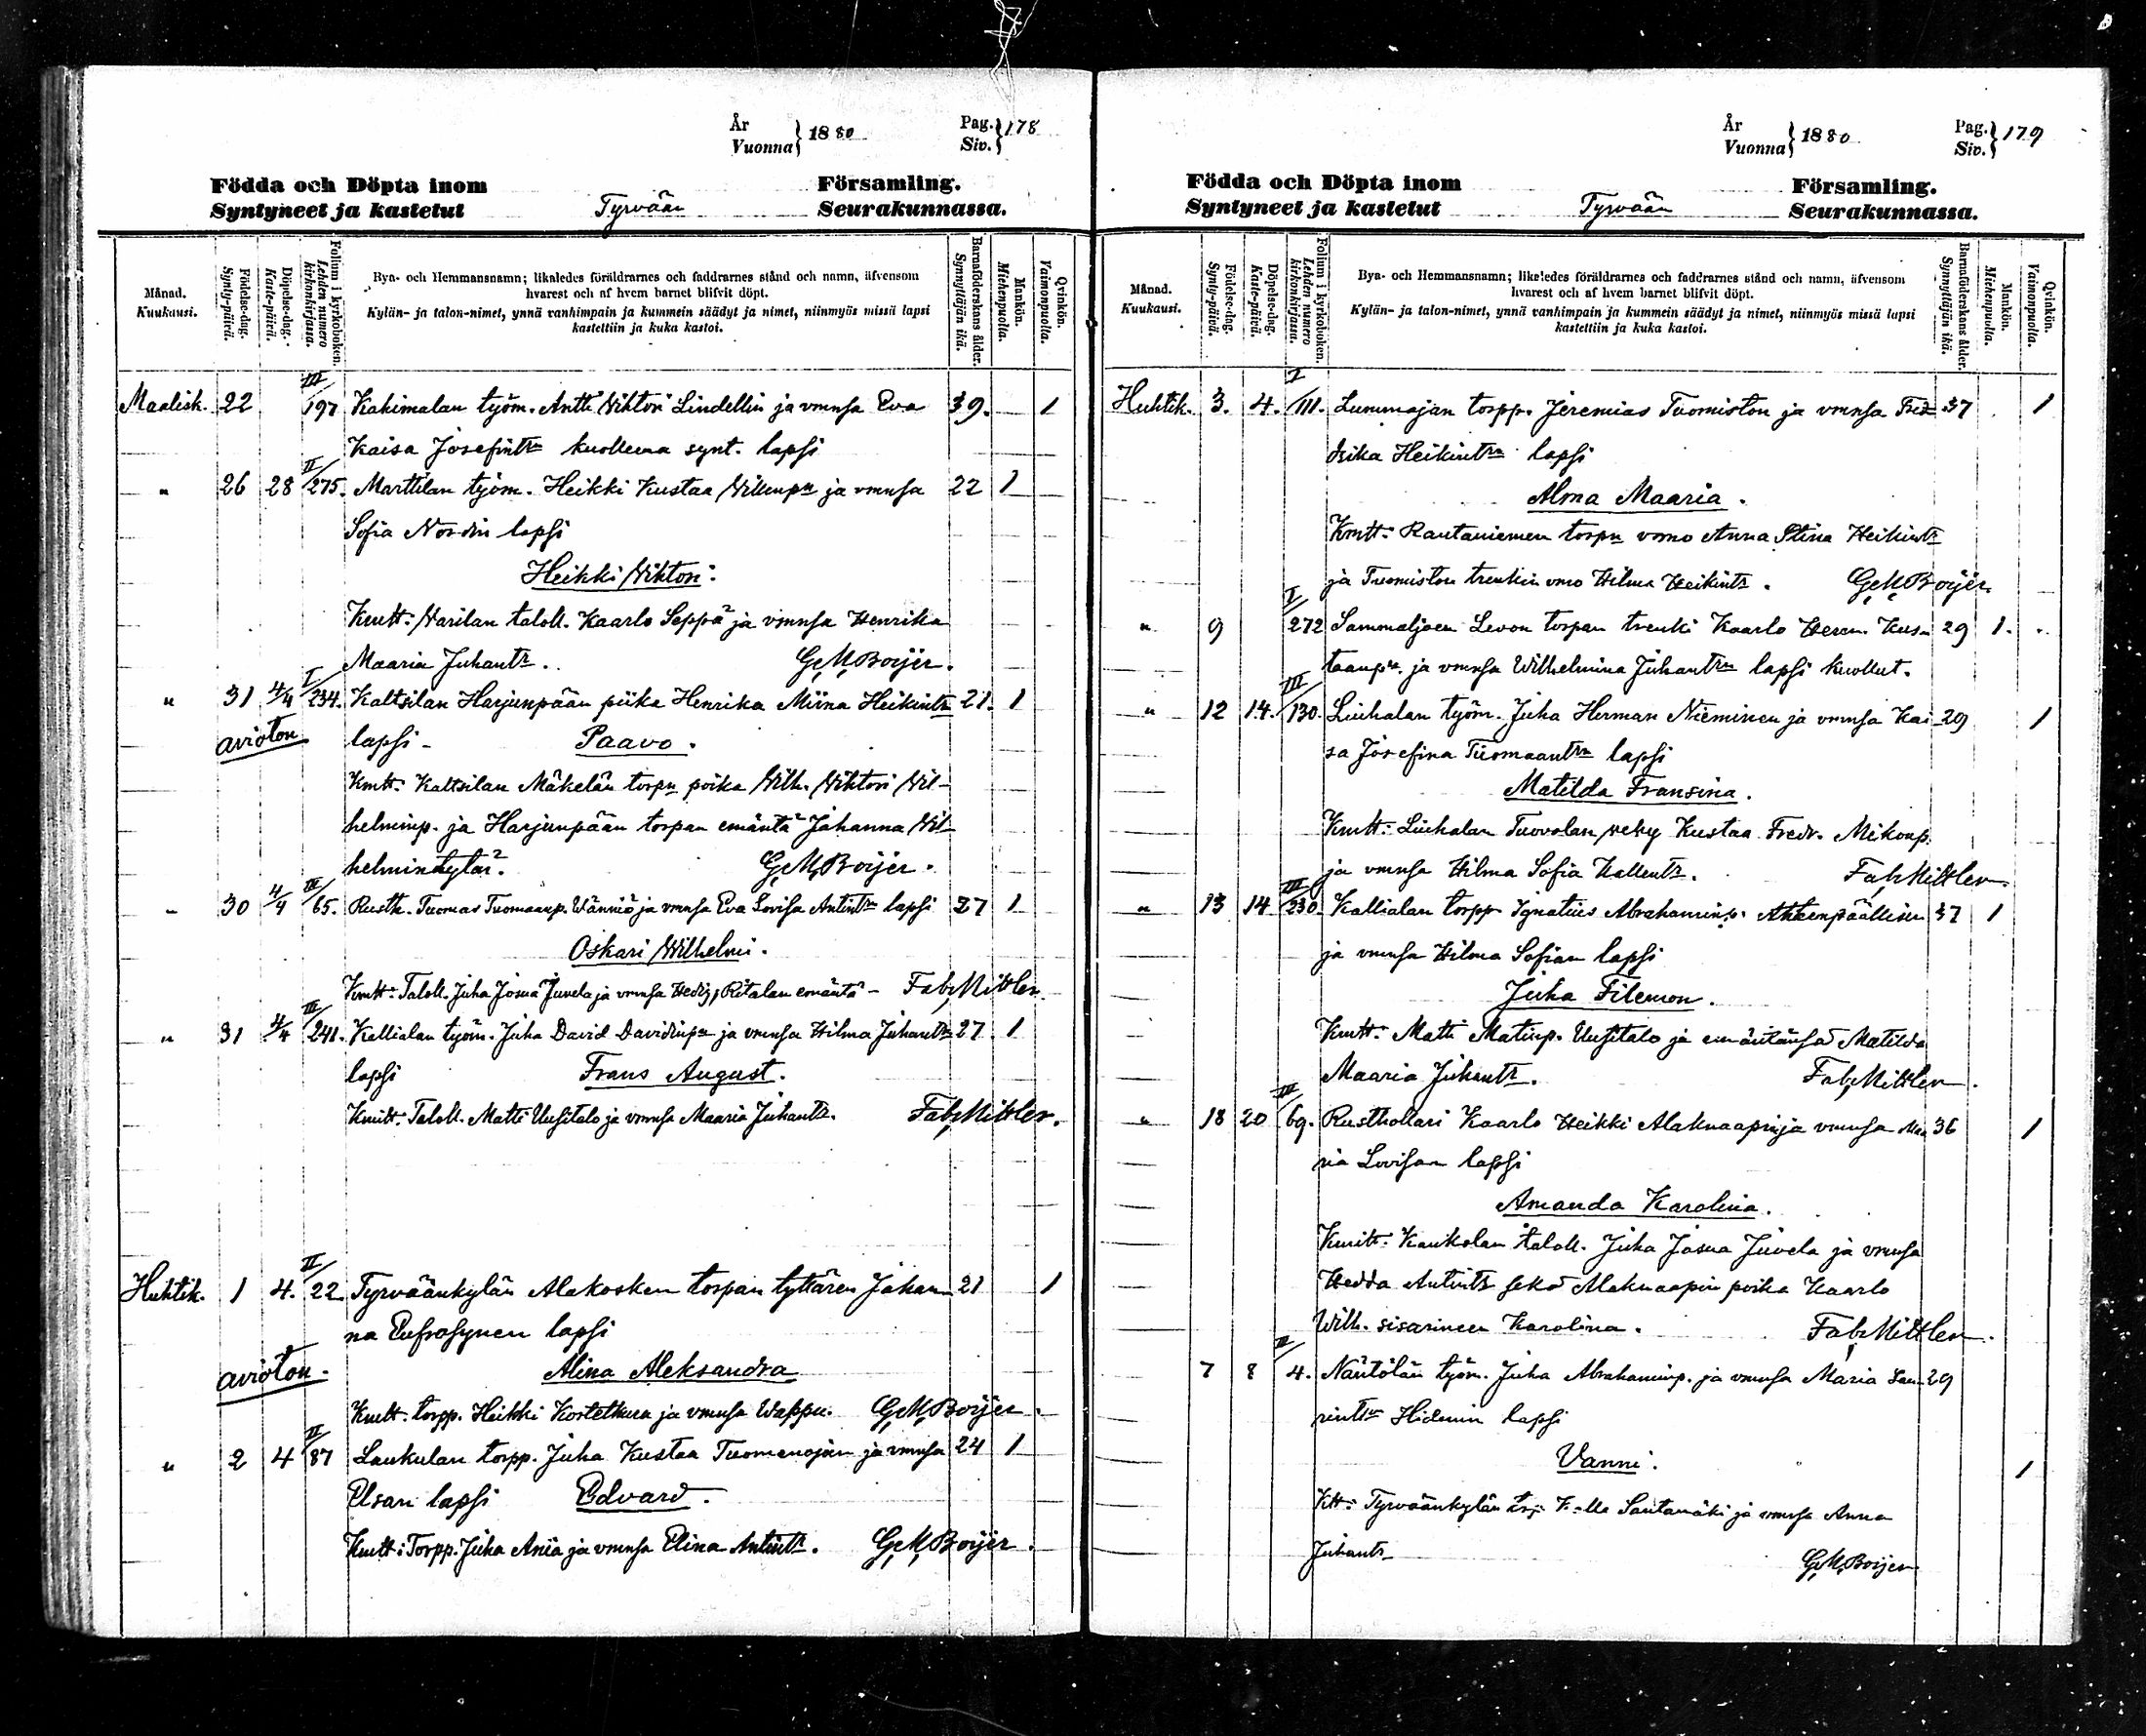 År
Vuonna } 1880
Pag.
Siv. } 178
Födda och Döpta inom Församling.
Syntyneet ja kastetut Tyrvään Seurakunnassa.
Månad.
Kuukausi.
Födelse-dag.
Synty-päivä.
Döpelse-dag.
Kaste-päivä.
Folium i kyrkoboken.
Lehden numero kirkonkirjassa.
Bya- och Hemmansnamn; likaledes föräldrarnes och faddrarnes stånd och namn, äfvensom
hvarest och af hvem barnet blifvit döpt.
Kylän- ja talon-nimet, ynnä vanhimpain ja kummein säädyt ja nimet, niinmyös missä lapsi
kastettiin ja kuka kastoi.
Barnaföderskans ålder.
Synnyttäjän ikä.
Mankön.
Miehenpuolta.
Qvinkön.
Vaimonpuolta.
Maalisk. 22 III/197 Kakimalan työm. Antti Viktori Lindellin ja vmnsa Eva 39. 1
Kaisa Josefintr kuolleena synt. lapsi
" 26 28 II/275. Marttilan työm. Heikki Kustaa Villenpn ja vmnsa 22 1
Sofia Nordin lapsi
Heikki Viktori.
Kmtt: Varilan taloll. Kaarlo Seppä ja vmnsa Henrika
Maaria Juhantr. G.M.Boijer.
" 31 4/4 I/234. Kaltsilan Harjunpään piika Henrika Miina Heikintr 21. 1
avioton lapsi - Paavo.
Kmtt: Kaltsilan Mäkelän torpn poika Vilh. Viktori Vil-
helminp. ja Harjunpään torpan emäntä Johanna Vil-
helmintytär. G.M.Boijer.
" 30 4/4 III/65. Rusth. Tuomas Tuomaanp. Wänniö ja vmnsa Eva Lovisa Antintr lapsi 27 1
Oskari Wilhelmi.
Kmtt: Taloll. Juha Josua Juvela ja vmnsa Hedvig, Ritalan emäntä - Fab. Mittler.
" 31 4/4 III/241. Kallialan työm. Juha David Davidinpn ja vmnsa Hilma Juhantr 27 1
lapsi Frans August.
Kmtt: Taloll. Matti Uusitalo ja vmnsa Maaria Juhantr. Fab. Mittler.
Huhtik. 1 4. II/22 Tyrväänkylän Alakosken torpan tyttären Johan- 21 1
na Eufrosynen lapsi
avioton. Alina Aleksandra
Kmtt: torpp. Heikki Kostetkura ja vmnsa Wappu. G.M.Boijer.
" 2 4 II/87 Laukulan torpp. Juha Kustaa Tuomenojan ja vmnsa 24 1
Elsan lapsi Edvard.
Kmtt: Torpp. Juha Ania ja vmnsa Elina Antintr. G.M.Boijer.
År
Vuonna } 1880
Pag.
Siv. } 179
Födda och Döpta inom Församling.
Syntyneet ja kastetut Tyrvään Seurakunnassa.
Månad.
Kuukausi.
Födelse-dag.
Synty-päivä.
Döpelse-dag.
Kaste-päivä.
Folium i kyrkoboken.
Lehden numero kirkonkirjassa.
Bya- och Hemmansnamn; likaledes föräldrarnes och faddrarnes stånd och namn, äfvensom
hvarest och af hvem barnet blifvit döpt.
Kylän- ja talon-nimet, ynnä vanhimpain ja kummein säädyt ja nimet, niinmyös missä lapsi
kastettiin ja kuka kastoi.
Barnaföderskans ålder.
Synnyttäjän ikä.
Mankön.
Miehenpuolta.
Qvinkön.
Vaimonpuolta.
Huhtik. 3. 4. I/111. Lummajan torpp. Jeremias Tuomiston ja vmnsa Fred- 37 1
rika Heikintrn lapsi
Alma Maaria.
Kmtt: Rautaniemen torpn vmo Anna Stina Heikintr
ja Tuomiston trenkin vmo Hilma Heikintr. G.M.Boijer.
" 9 I/272 Sammaljoen Levon torpan trenki Kaarlo Herm. Kus- 29 1.
taanpn. ja vmnsa Wilhelmina Juhantrn lapsi kuollut.
" 12 14. III/130. Liuhalan työm. Juha Herman Nieminen ja vmnsa Kai- 29 1
sa Josefina Tuomaantrn lapsi
Matilda Fransina.
Kmtt: Liuhalan Tuovolan Kustaa Fredr. Mikonp.
ja vmnsa Hilma Sofia Kallentr. Fab. Mittler.
" 13 14 III/230. Kallialan torpp Ignatius Abrahaminp. 37 1
ja vmnsa Hilma Sofian lapsi
Juha Filemon.
Kmtt: Matti Matinp. Uusitalo ja emäntänsä Matilda
Maaria Juhantr. Fab. Mittler.
" 18 20 III/69. Rusthollari Kaarlo Heikki Alaknaapin ja vmnsa Maa- 36 1
ria Lovisan lapsi
Amanda Karolina.
Kmtt: Kaukolan taloll. Juha Josua Juvela ja vmnsa
Hedda Antintr sekä Alaknaapin poika Kaarlo
Wilh. sisarineen Karolina. Fab. Mittler.
7 8 II/4. Näntölän työm. Juha Abrahaminp. ja vmnsa Maria Lau- 29
rintrn Hidmin lapsi
Vanni. 1
Ktt: Tyrväänkylän torp. Kalle Santamäki ja vmnsa Anna
Juhantr G.M.Boijer